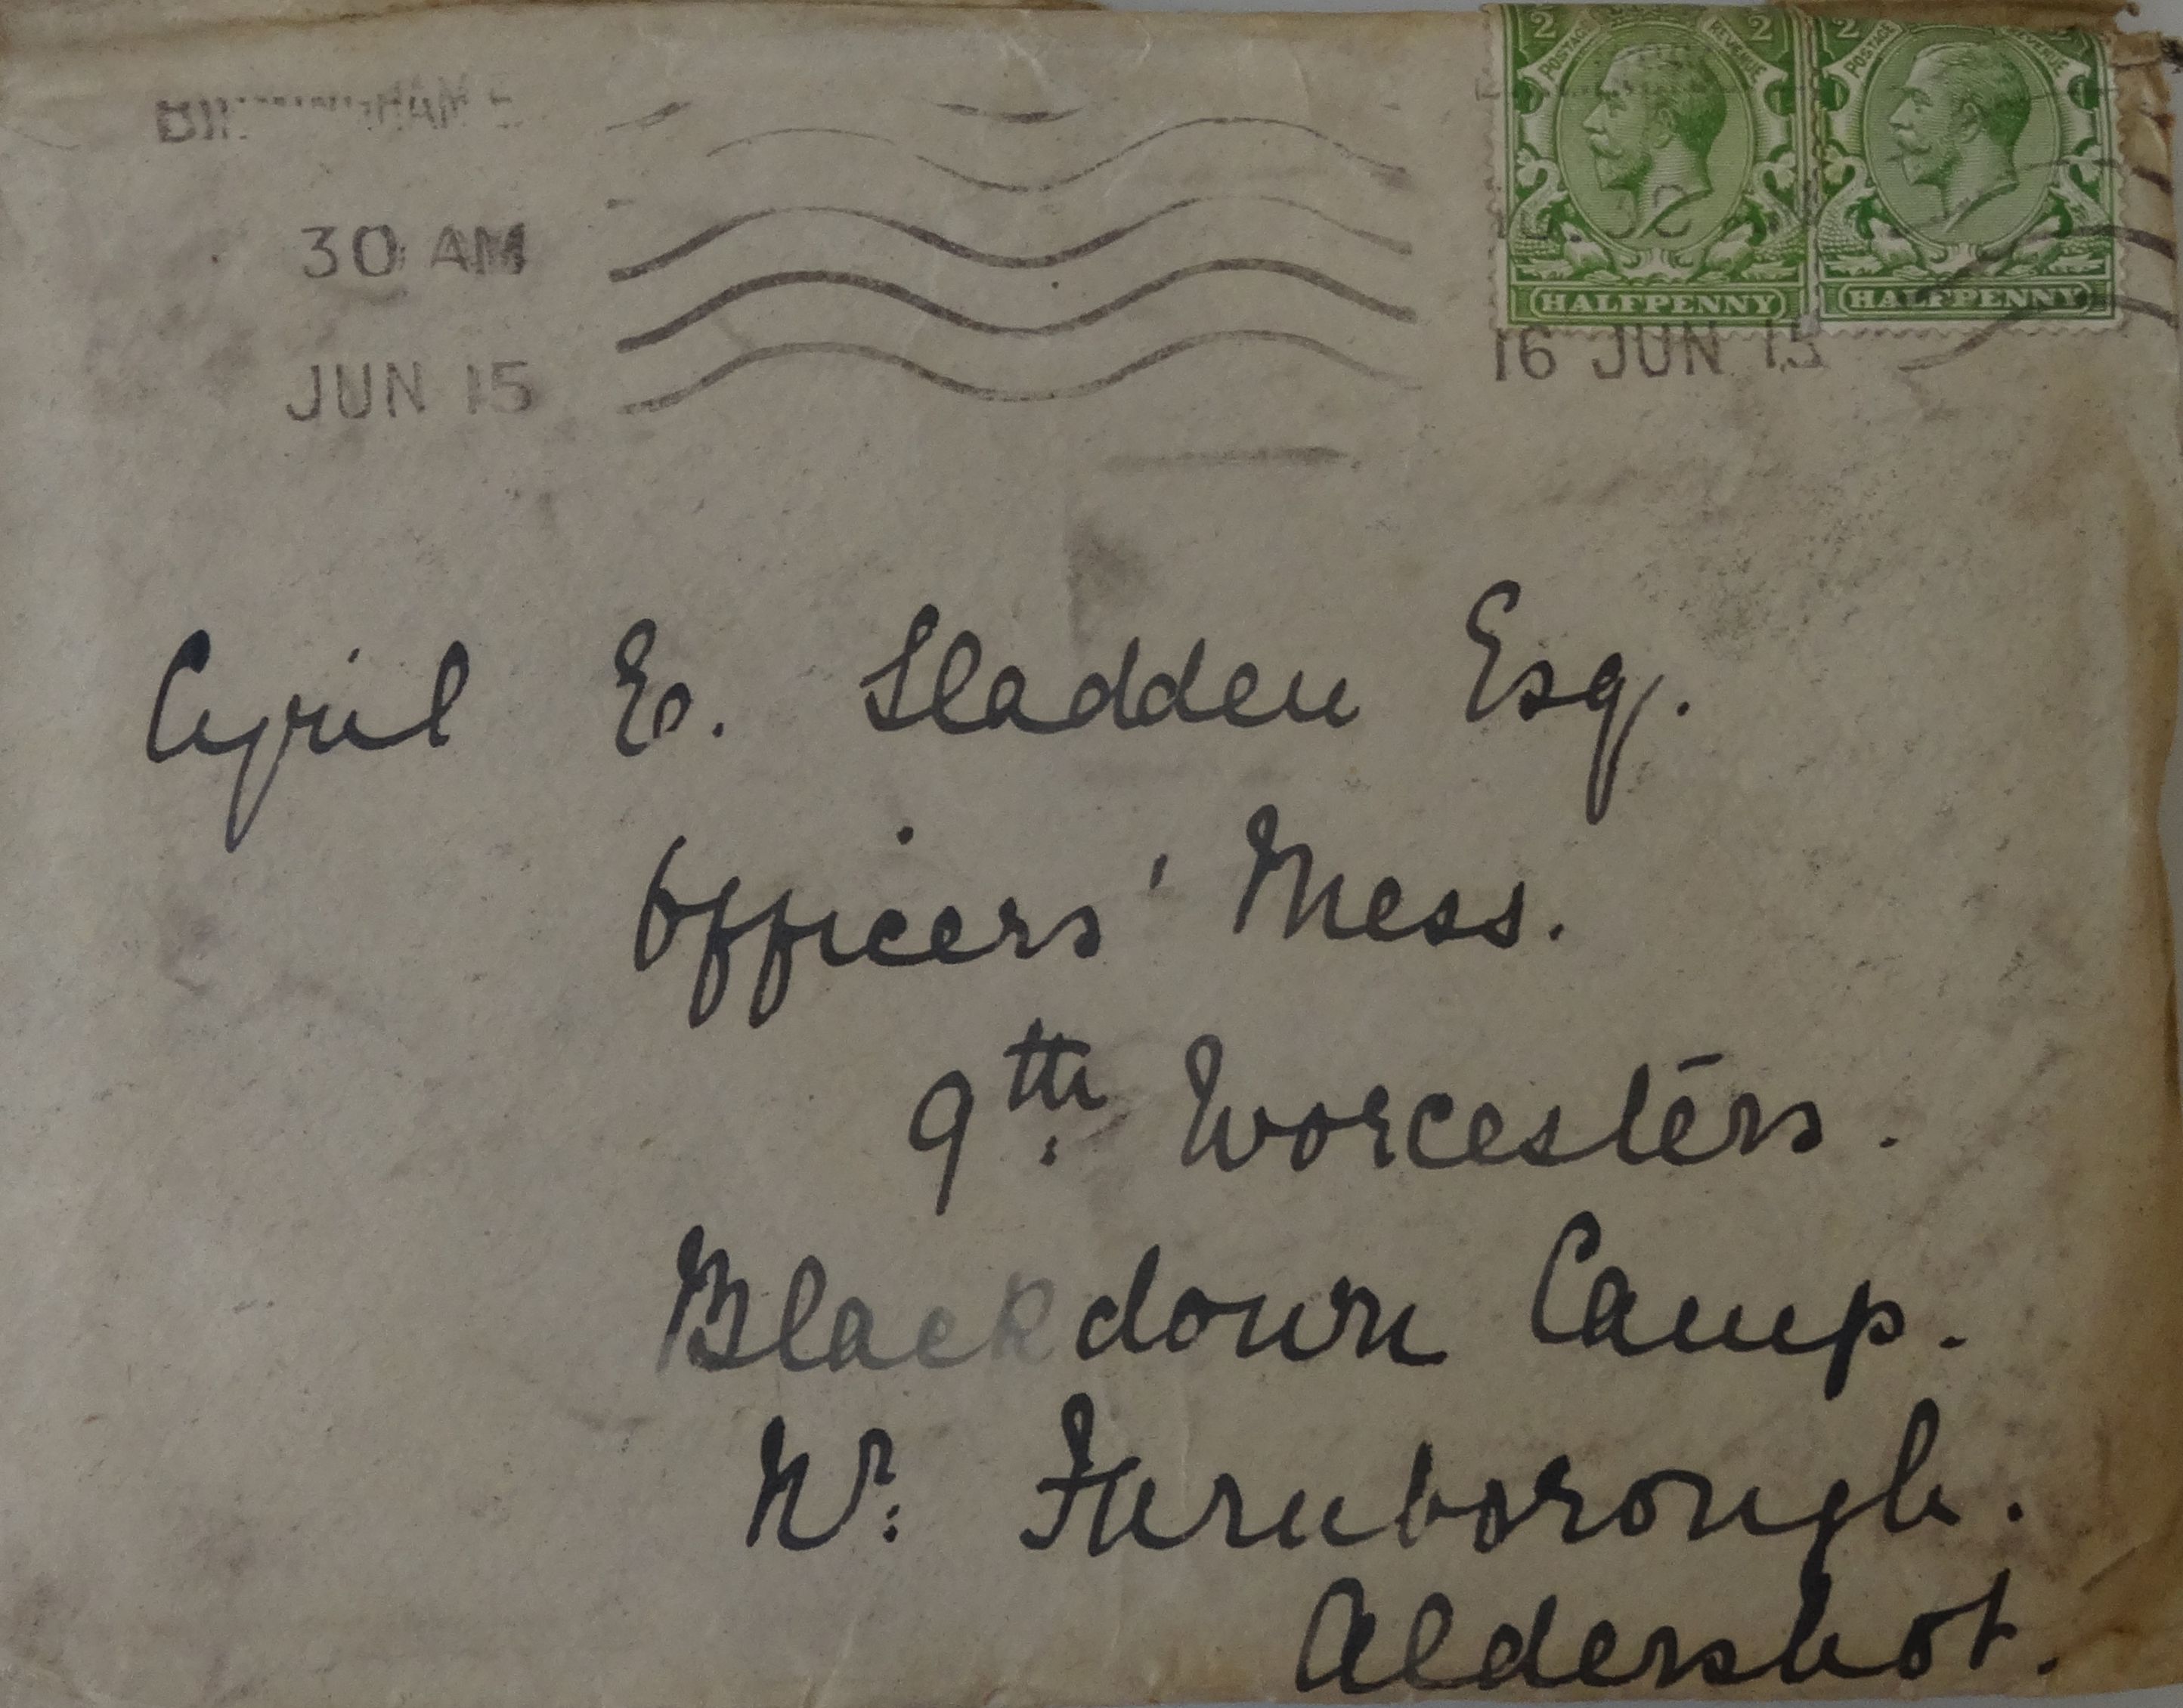 2 POSTAGE REVENUE 2 2 POSTAGE REVENUE
30 AM
HALFPENNY HALFPENNY
JUN 15 16 JUN 15
Cyril E. Sladden Esq.
Officers' Mess.
9th Worcesters.
Blackdown Camp.
Nr. Farnborough.
Aldershot.